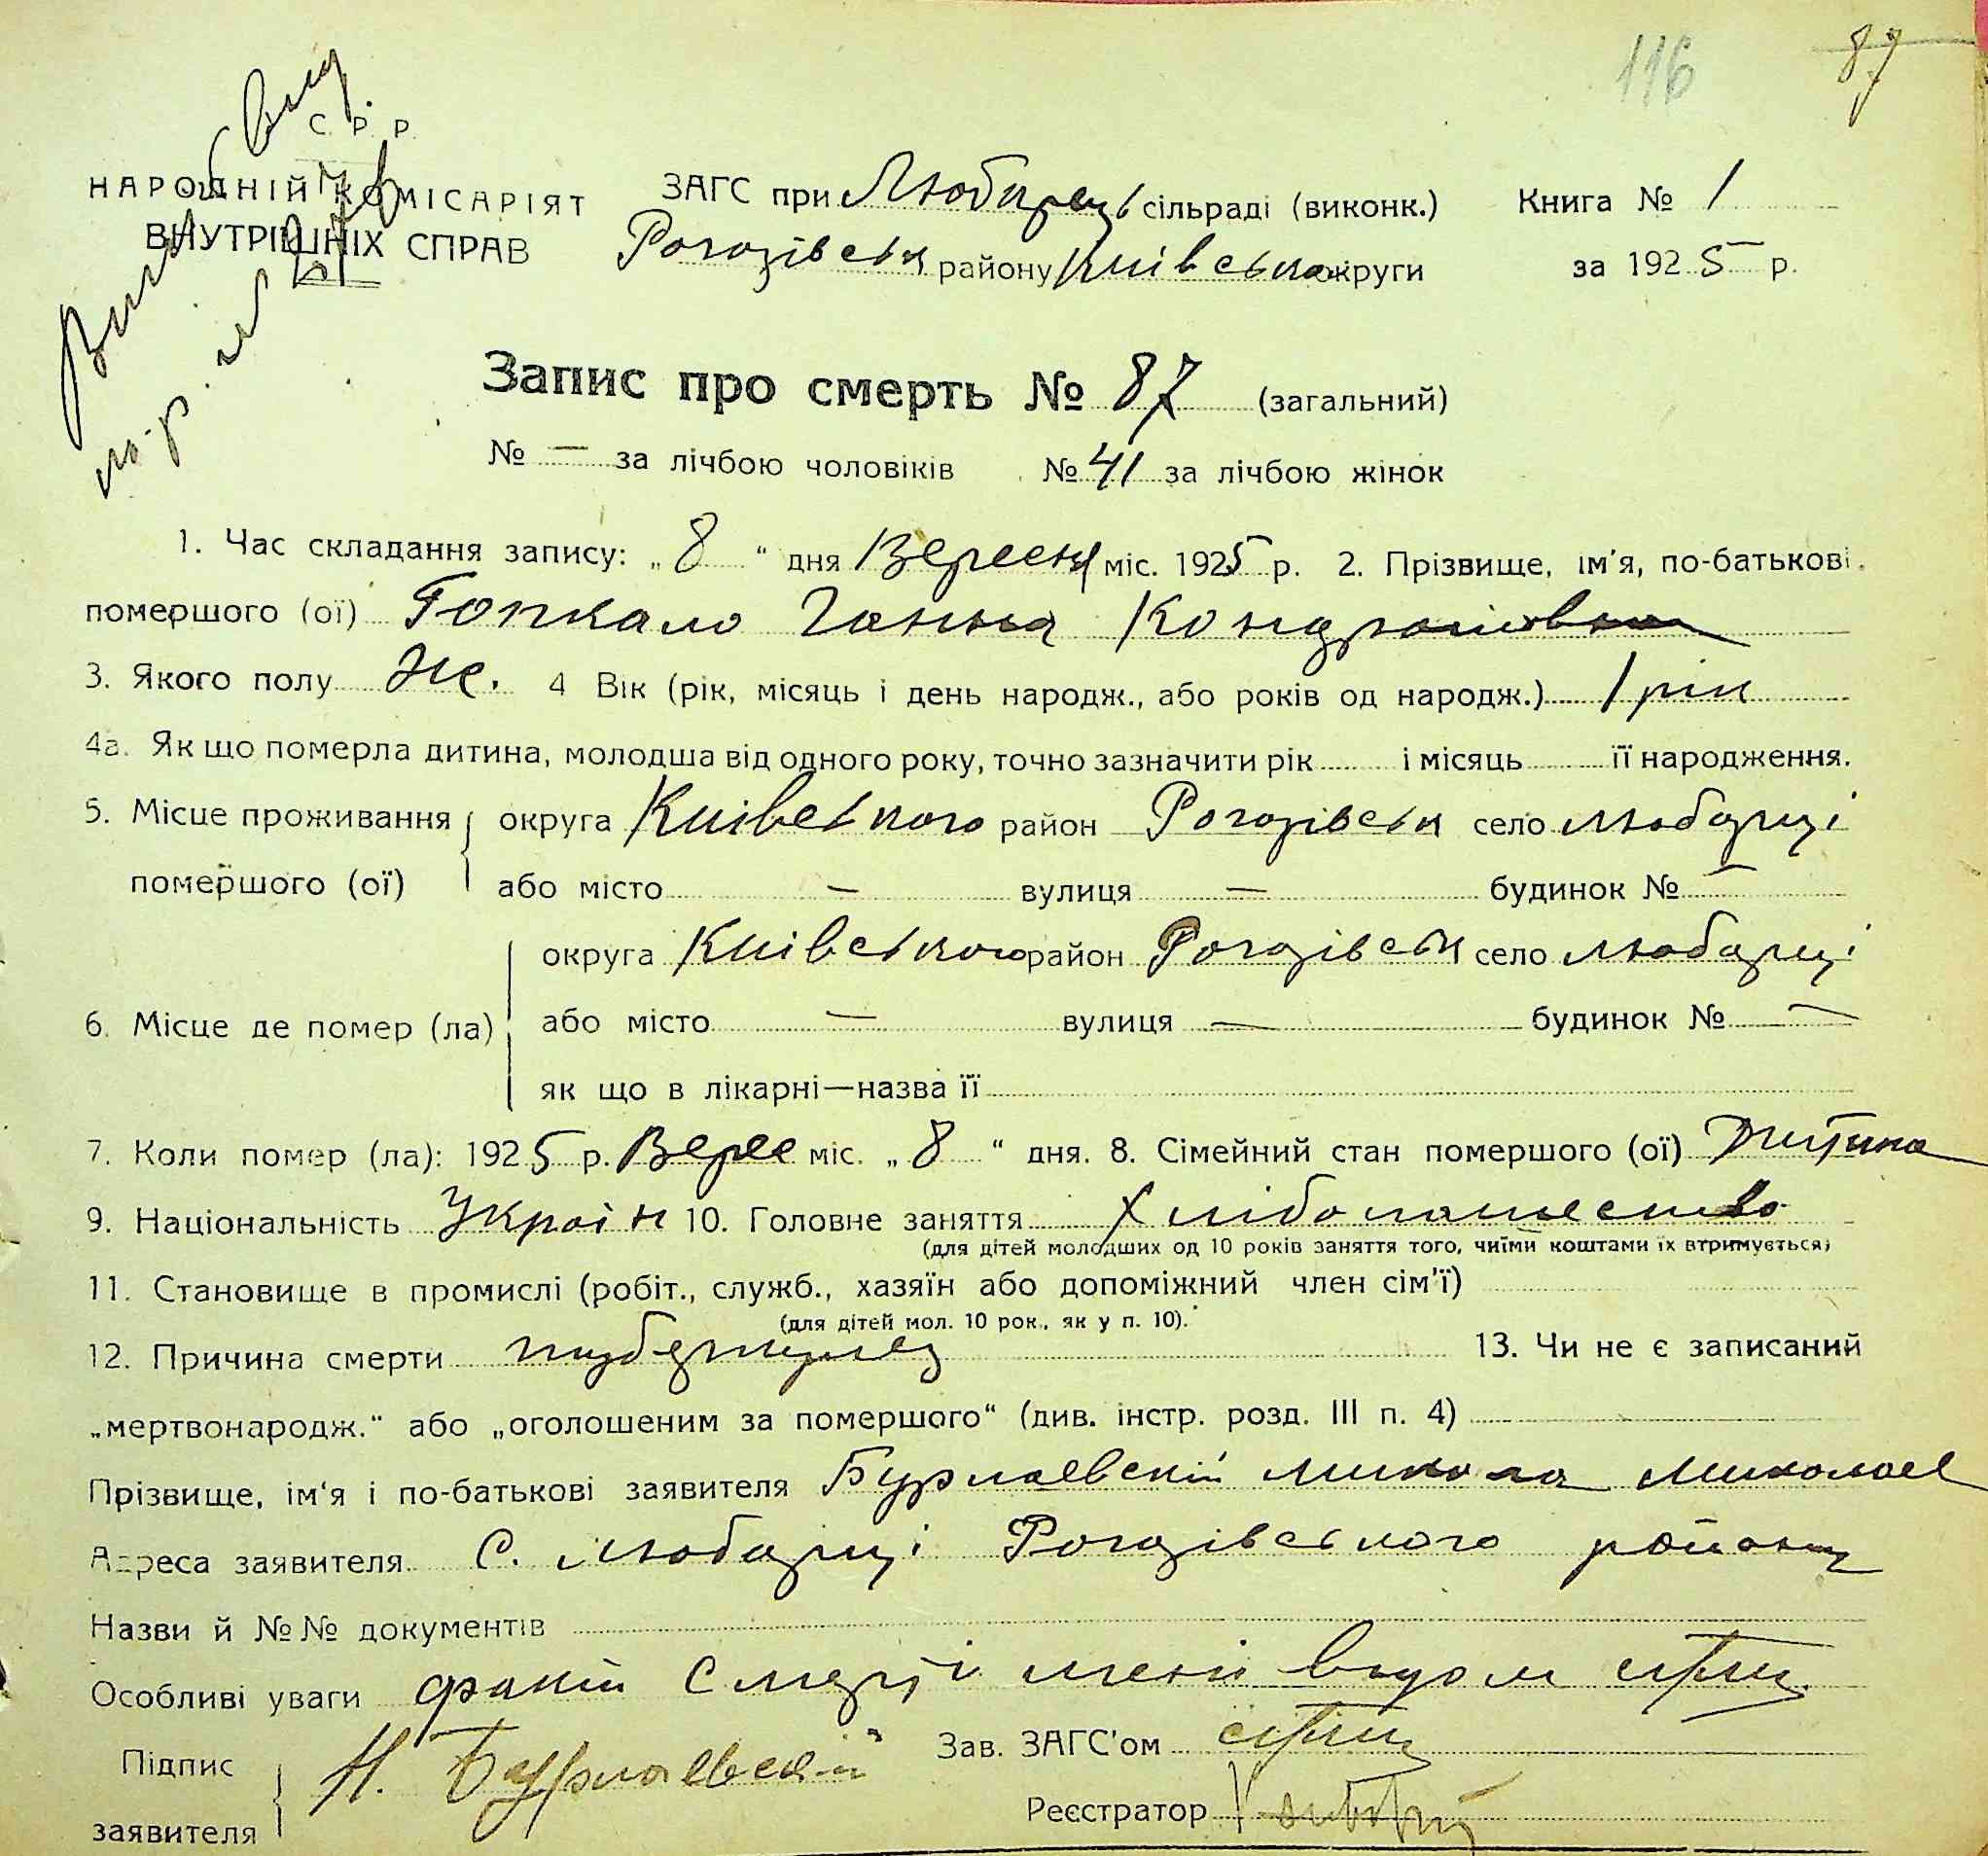 116 87
С. Р. Р.
НАРОДНІЙ КОМІСАРІЯТ
ВНУТРІШНІХ СПРАВ
ЗАГС при Любарец. сільраді (виконк.) Книга № 1
Рогозівськ району Київськ округи за 1925 р.
Запис про смерть № 87 (загальний)
№ — за лічбою чоловіків № 41 за лічбою жінок
1. Час складання запису: „8“ дня Вересня міс. 1925 р. 2. Прізвище, ім'я, по-батькові
помершого (ої) Гопкало Ганна Кондратовна
3. Якого полу Же. 4 Вік (рік, місяць і день народж., або років од народж.) 1 рік
4а. Як що померла дитина, молодша від одного року, точно зазначити рік і місяць її народження.
5. Місце проживання помершого (ої) округа Київського район Рогозівськ село Любарці
або місто — вулиця — будинок № —
6. Місце де помер (ла) округа Київського район Рогозівськ село Любарці
або місто — вулиця — будинок № —
як що в лікарні—назва її
7. Коли помер (ла): 1925 р. Вере міс. „8“ дня. 8. Сімейний стан помершого (ої) Дитина
9. Національність Україн 10. Головне заняття Хлібопашество
(для дітей молодших од 10 років заняття того, чиїми коштами їх втримується)
11. Становище в промислі (робіт., служб., хазяїн або допоміжний член сім'ї)
(для дітей мол. 10 рок., як у п. 10).
12. Причина смерти туберкулез 13. Чи не є записаний
„мертвонародж.“ або „оголошеним за помершого“ (див. інстр. розд. III п. 4)
Прізвище, ім'я і по-батькові заявителя Бурлаевский Микола Миколаев
Адреса заявителя С. Любарці Рогозівського району
Назви й №№ документів
Особливі уваги факт Смерті мені
Підпис заявителя Н. Бурлаевский Зав. ЗАГС'ом
Реєстратор